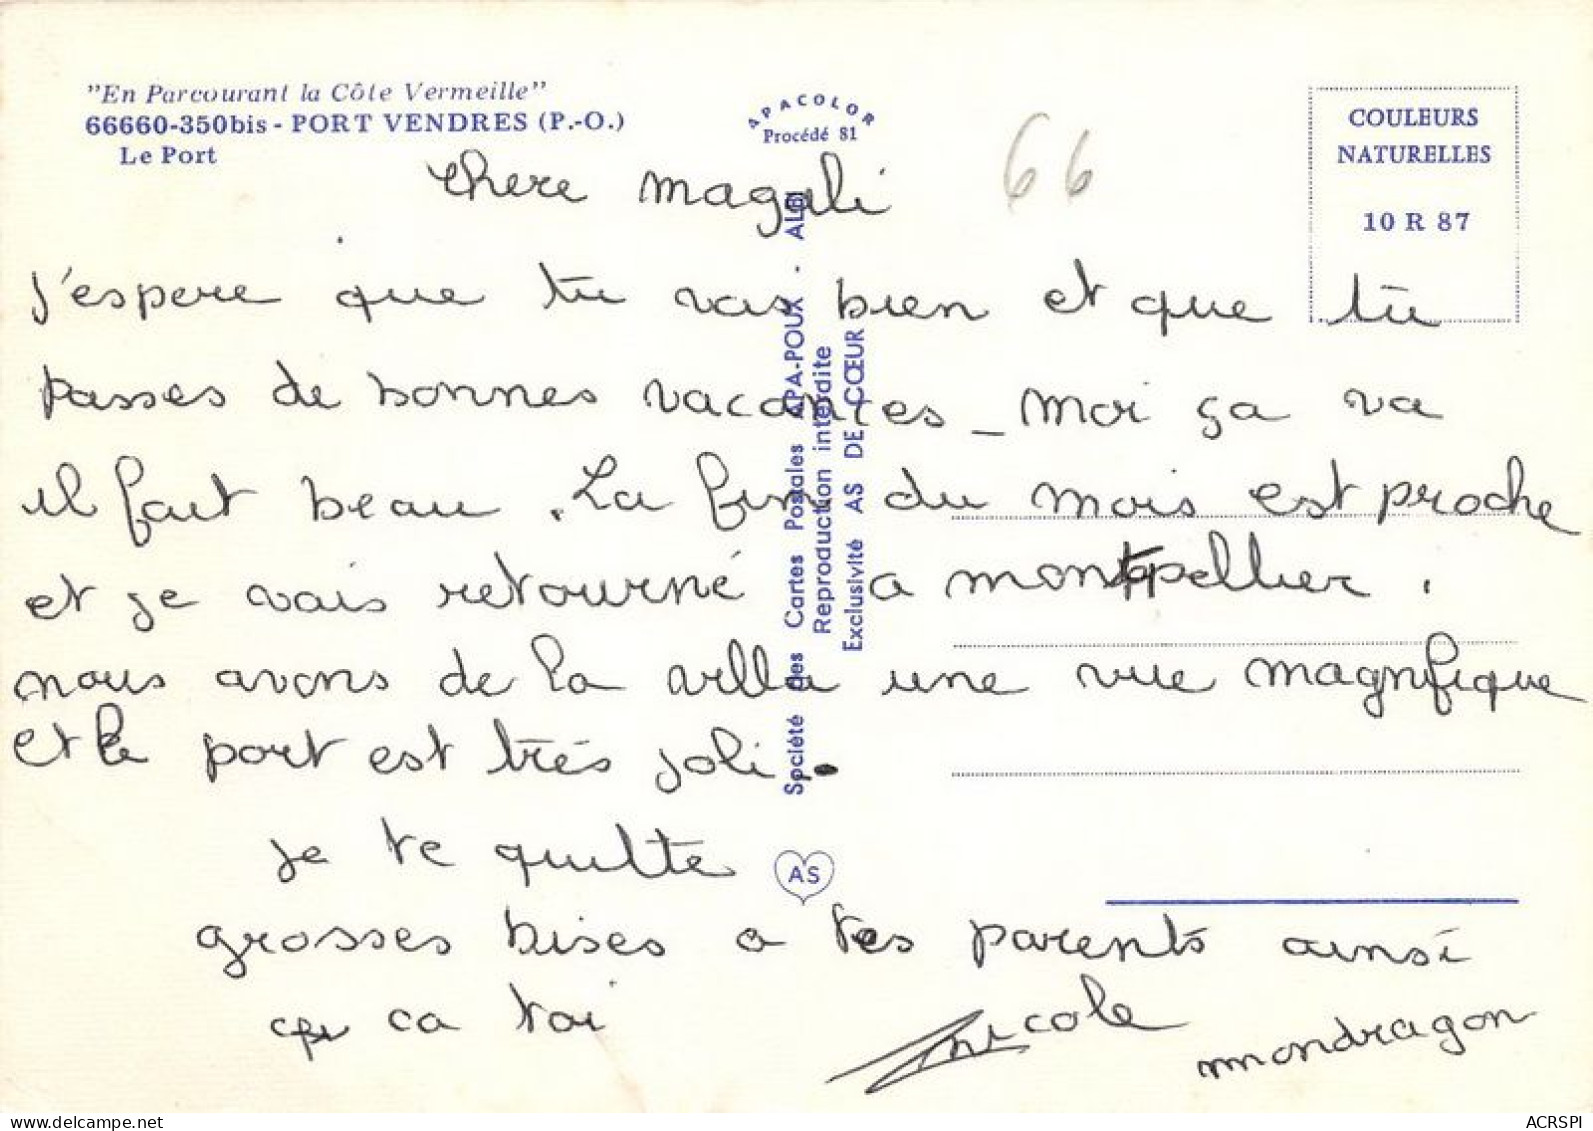 "En Parcourant la Côte Vermeille"
66660-350bis - PORT VENDRES (P.-O.)
Le Port
APACOLOR
Procédé 81
COULEURS
NATURELLES
10 R 87
66
chere magali
j'espere que tu vas bien et que tu
passes de bonnes vacances_ moi ça va
il fait beau . La fin du mois est proche
et je vais retourné a montpellier .
nous avons de la villa une vue magnifique
et le port est très joli.
je te quitte
grosses bises a tes parents ainsi
qu ca toi
nicole
mondragon
Société des Cartes Postales APA-POUX - ALBI
Reproduction interdite
Exclusivité AS DE CŒUR
AS
delcampe.net
ACRSPI